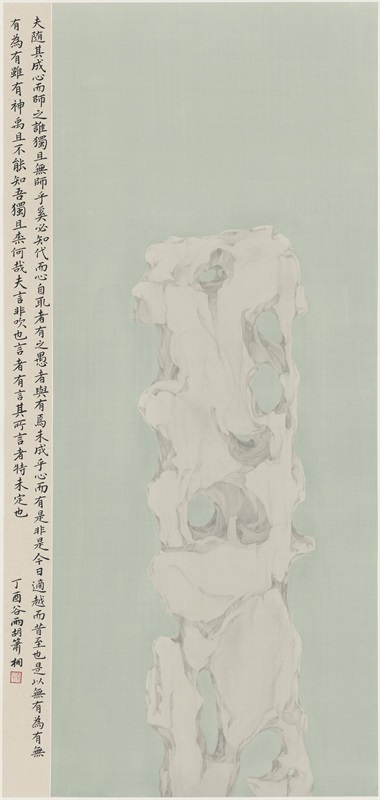 夫隨其成心而師之誰獨且無師乎奚必知代而心自取者有之愚者與有焉未成乎心而有是非是今日適越而昔至也是以無有為有無
有為有雖有神禹且不能知吾獨且柰何哉夫言非吹也言者有言其所言者特未定也
丁酉谷雨胡簫桐